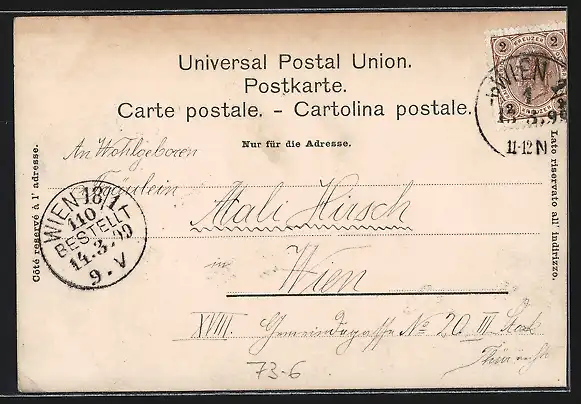 Universal Postal Union.
Postkarte.
Carte postale. - Cartolina postale.
Nur für die Adresse.
2 KREUZER 2
WIEN
1
13.3.99
11-12 N
Côté reservé à l'adresse.
Lato riservato all' indirizzo.
An Wohlgeboren
Fräulein
Mali Hirsch
in
Wien
XVIII. Gemeindegasse No 20 III Stock
Thür rechts
WIEN 18/1
110
BESTELLT
14.3.99
9.V
73-6